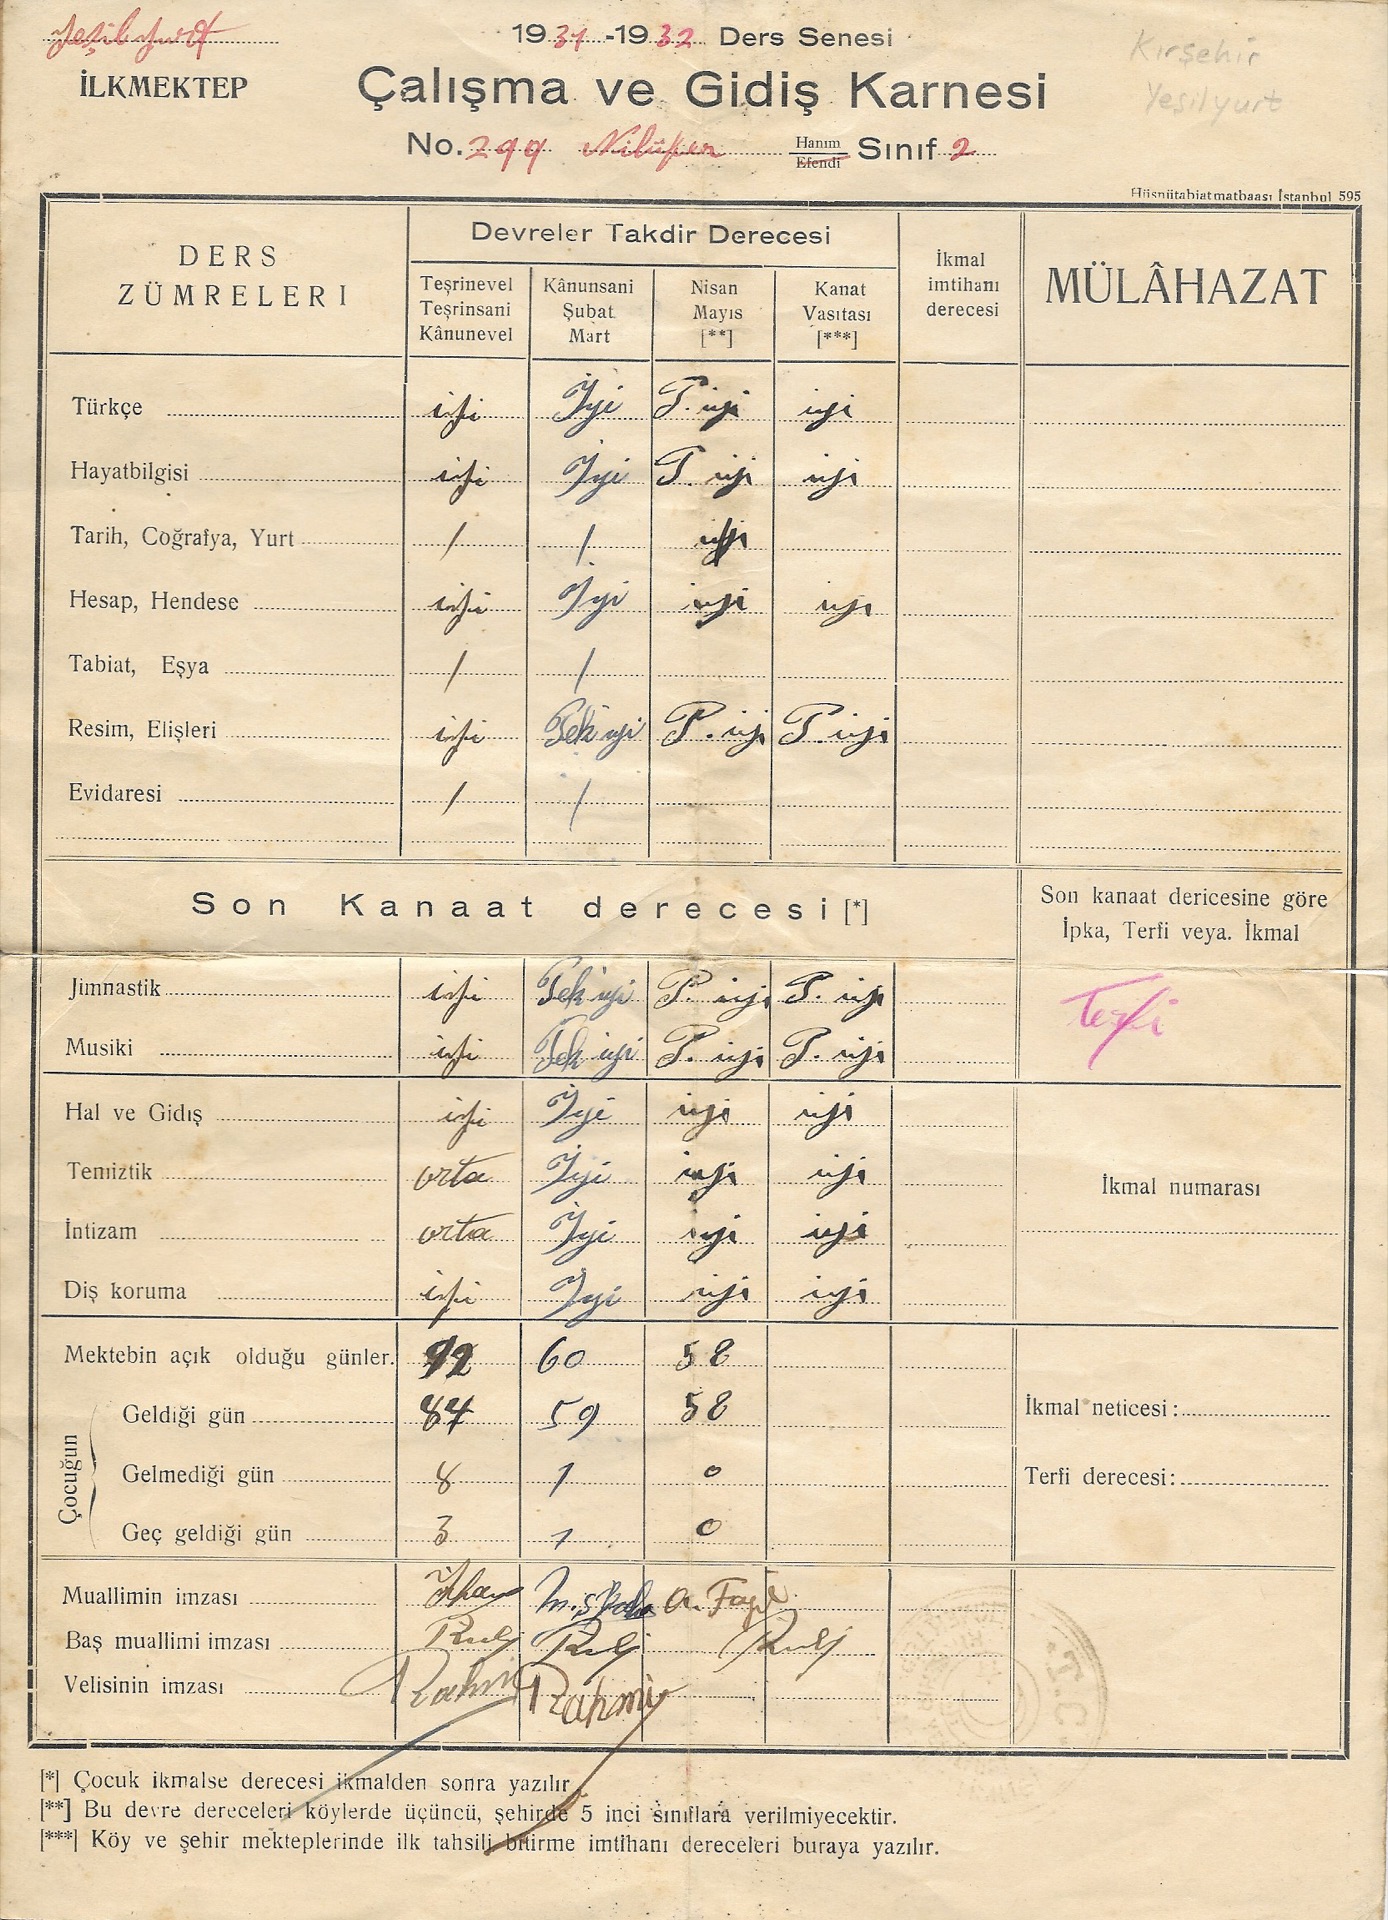 Yeşilyurt
İLKMEKTEP
1931-1932 Ders Senesi
Çalışma ve Gidiş Karnesi
Kırşehir
Yeşilyurt
No. 299 Nilüfer Hanım Efendi Sınıf 2
Hüsnütabiat matbaası İstanbul 595
DERS ZÜMRELERİ
Devreler Takdir Derecesi
Teşrinevel Teşrinsani Kânunevel
Kânunsani Şubat Mart
Nisan Mayıs [**]
Kanat Vasıtası [***]
İkmal imtihanı derecesi
MÜLÂHAZAT
Türkçe iyi İyi P. iyi iyi
Hayatbilgisi iyi İyi P. iyi iyi
Tarih, Coğrafya, Yurt / / iyi
Hesap, Hendese iyi İyi iyi iyi
Tabiat, Eşya / /
Resim, Elişleri iyi Pek iyi P. iyi P. iyi
Evidaresi / /
Son Kanaat derecesi [*]
Son kanaat dericesine göre
İpka, Terfi veya. İkmal
Terfi
Jimnastik iyi Pek iyi P. iyi P. iyi
Musiki iyi Pek iyi P. iyi P. iyi
Hal ve Gidiş iyi İyi iyi iyi
Temiztik orta İyi iyi iyi
İntizam orta İyi iyi iyi
Diş koruma iyi İyi iyi iyi
İkmal numarası
Mektebin açık olduğu günler. 92 60 58
Çocuğun
Geldiği gün 84 59 58
Gelmediği gün 8 1 0
Geç geldiği gün 3 1 0
İkmal neticesi :
Terfi derecesi :
Muallimin imzası
Baş muallimi imzası
Velisinin imzası Rahmi Rahmi
T.C.
[*] Çocuk ikmalse derecesi ikmalden sonra yazılır
[**] Bu devre dereceleri köylerde üçüncü, şehirde 5 inci sınıflara verilmiyecektir.
[***] Köy ve şehir mekteplerinde ilk tahsili bitirme imtihanı dereceleri buraya yazılır.